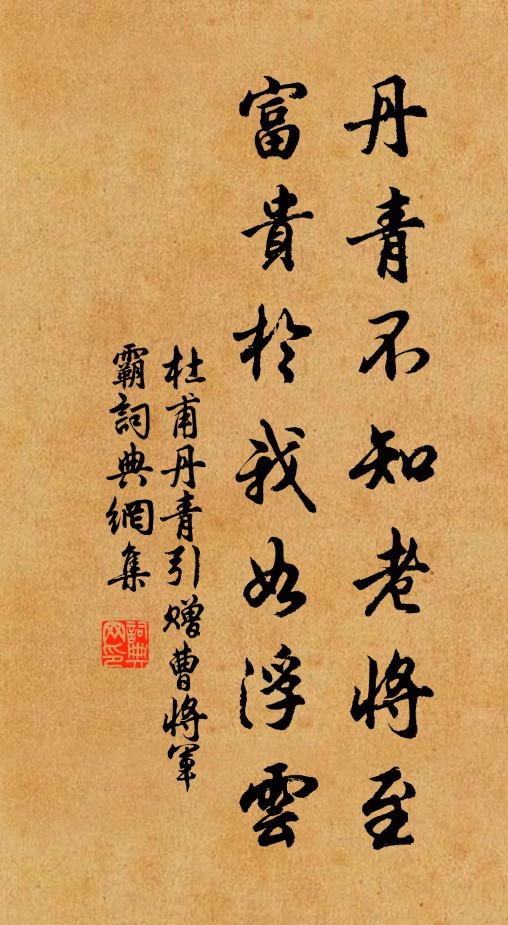 丹青不知老將至
富貴於我如浮雲
杜甫丹青引贈曹將軍
霸詞典網集
詞典网印